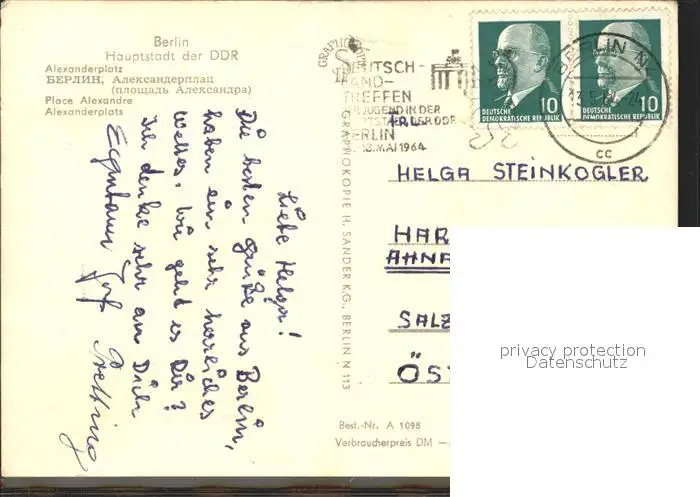 Berlin
Hauptstadt der DDR
Alexanderplatz
БЕРЛИН, Александерплац
(площадь Александра)
Place Alexandre
Alexanderplats
Liebe Helga!
Die besten Grüße aus Berlin,
haben ein sehr herrliches
Wetter. Wie geht es Dir?
Ich denke sehr an Dich
GRAPHOKOPIE H. SANDER K.G., BERLIN N 113
DEUTSCH-
LAND-
TREFFEN
DER JUGEND IN DER
HAUPTSTADT DER DDR
BERLIN
18. MAI 1964
BERLIN N
cc
10
DEUTSCHE
DEMOKRATISCHE REPUBLIK
10
DEUTSCHE
DEMOKRATISCHE REPUBLIK
FRL.
HELGA STEINKOGLER
HAR
AHNA
SALZ
ÖST
privacy protection
Datenschutz
Best.-Nr. A 1098
Verbraucherpreis DM